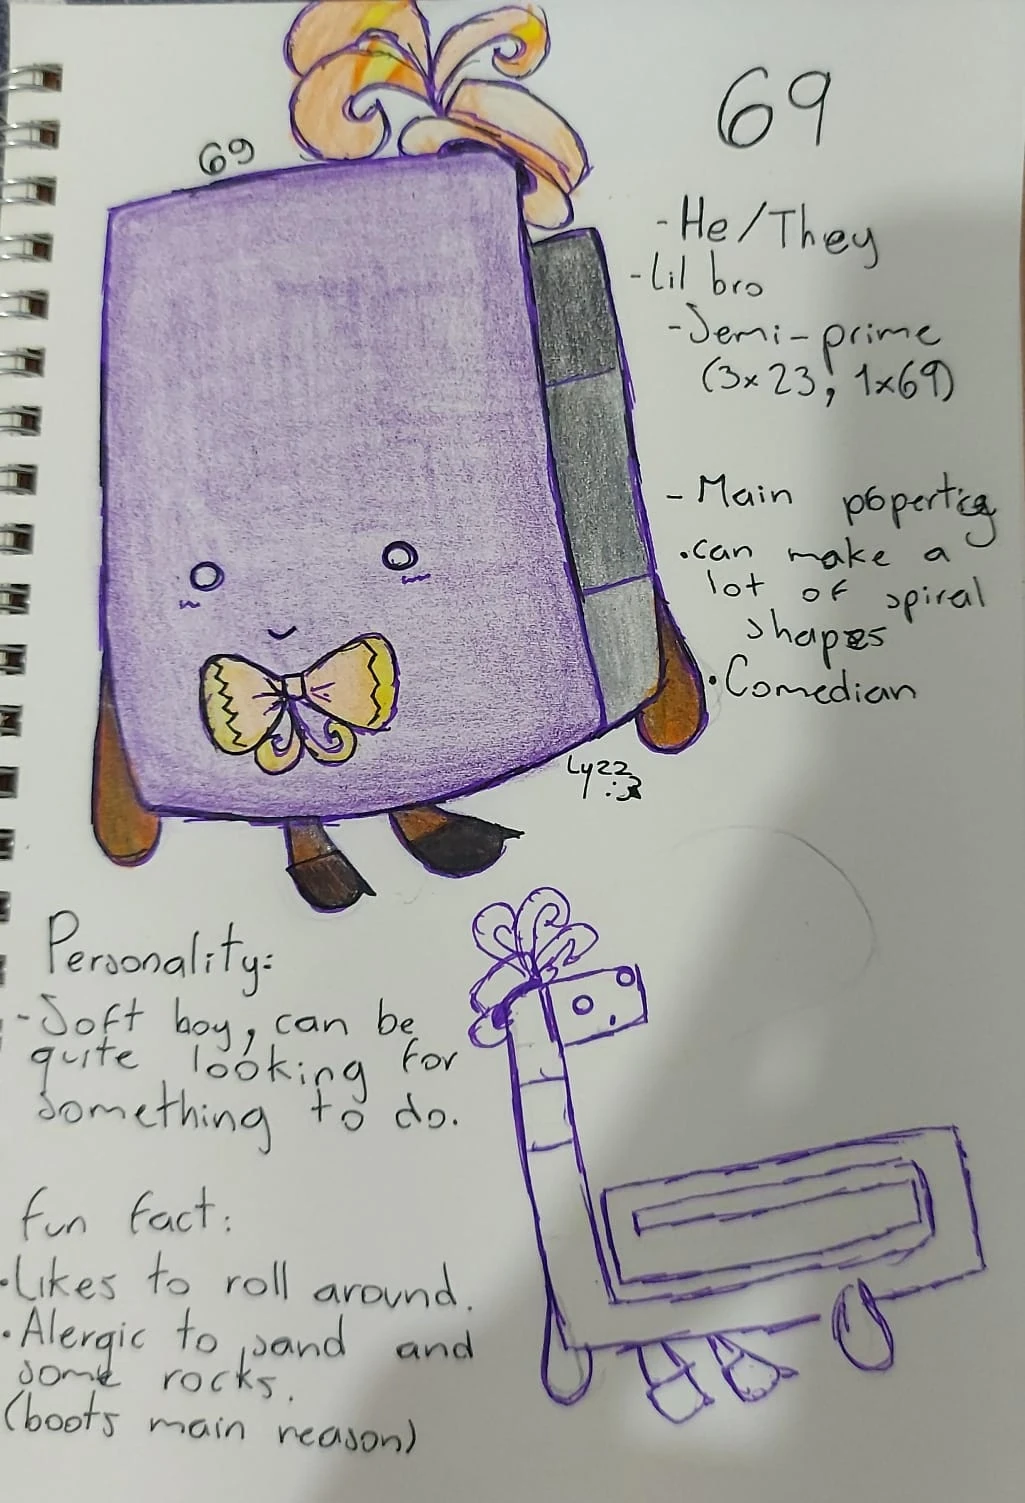 69
69
-He/They
-Lil bro
-Semi-prime
(3x23, 1x69)
-Main poperties
•can make a
lot of spiral
shapes
•Comedian
Lyzz
Personality:
-Soft boy, can be
quite looking for
something to do.
Fun fact:
•Likes to roll around.
•Alergic to sand and
some rocks.
(boots main reason)